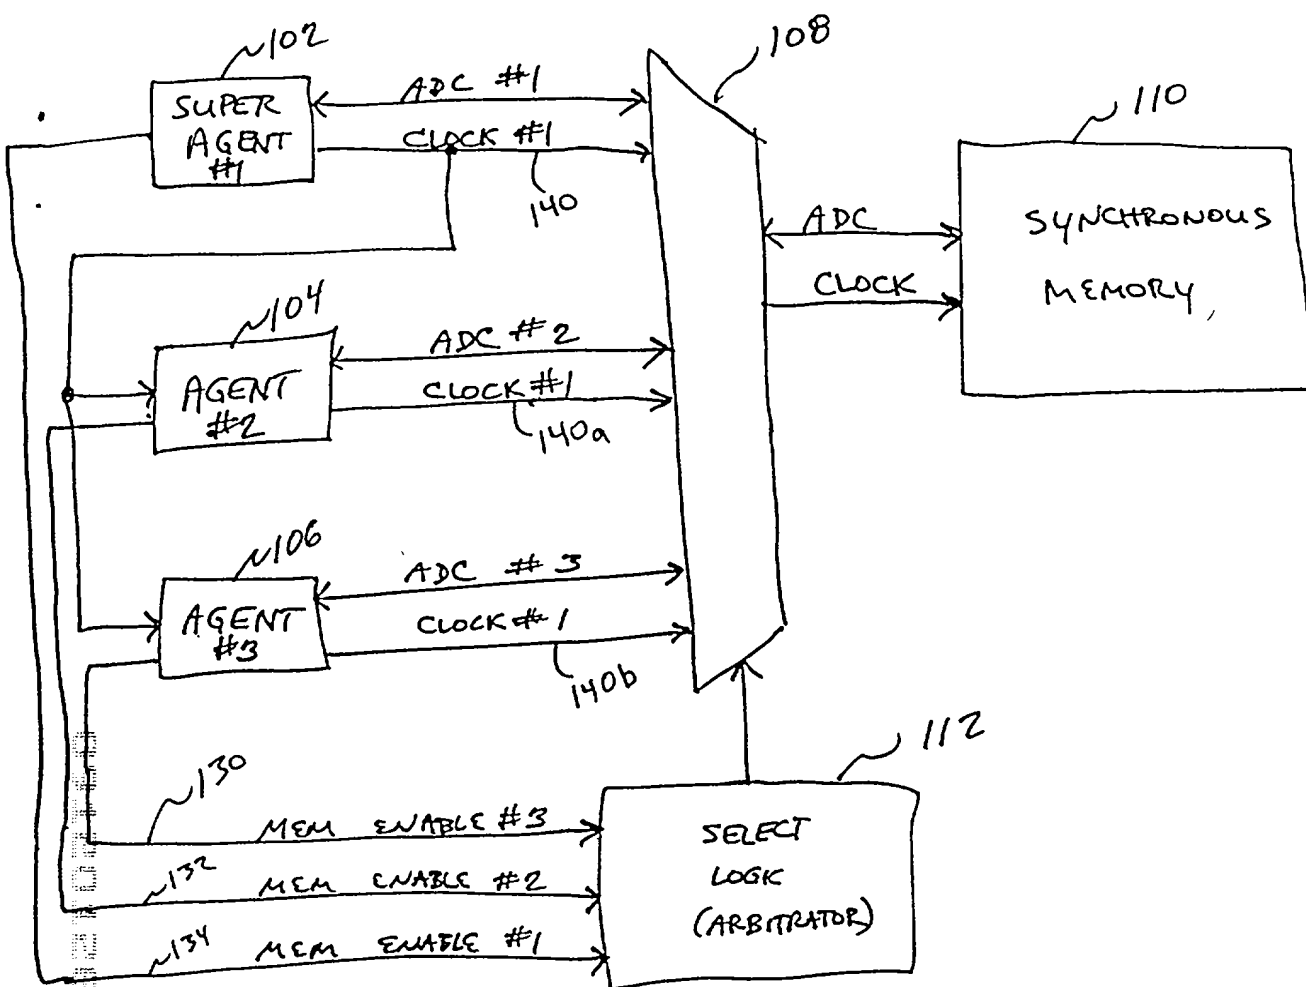 102
SUPER
AGENT
#1
ADC #1
CLOCK #1
140
108
110
SYNCHRONOUS
MEMORY
ADC
CLOCK
104
AGENT
#2
ADC #2
CLOCK #1
140a
106
AGENT
#3
ADC #3
CLOCK #1
140b
112
SELECT
LOGIC
(ARBITRATOR)
130
MEM ENABLE #3
132
MEM ENABLE #2
134
MEM ENABLE #1